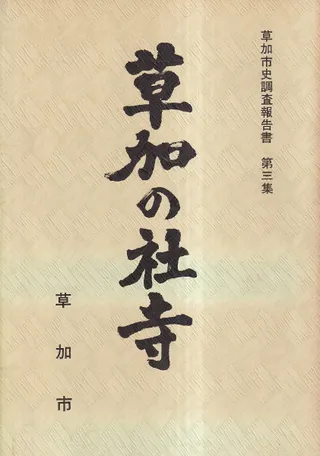 草加市史調査報告書 第三集
草加の社寺
草加市